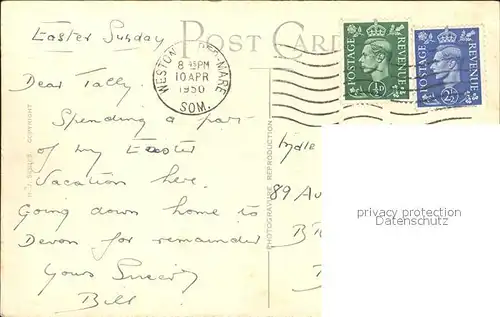 Easter Sunday
POST CARD
WESTON-SUPER-MARE
8 45 PM
10 APR
1950
SOM.
POSTAGE REVENUE
½D
POSTAGE REVENUE
2½D
Dear Tally,
Spending a part
of my Easter
Vacation here.
Going down home to
Devon for remainder
Yours Sincerely
Bill
COPYRIGHT
PHOTOGRAVURE REPRODUCTION
89 Au
privacy protection
Datenschutz